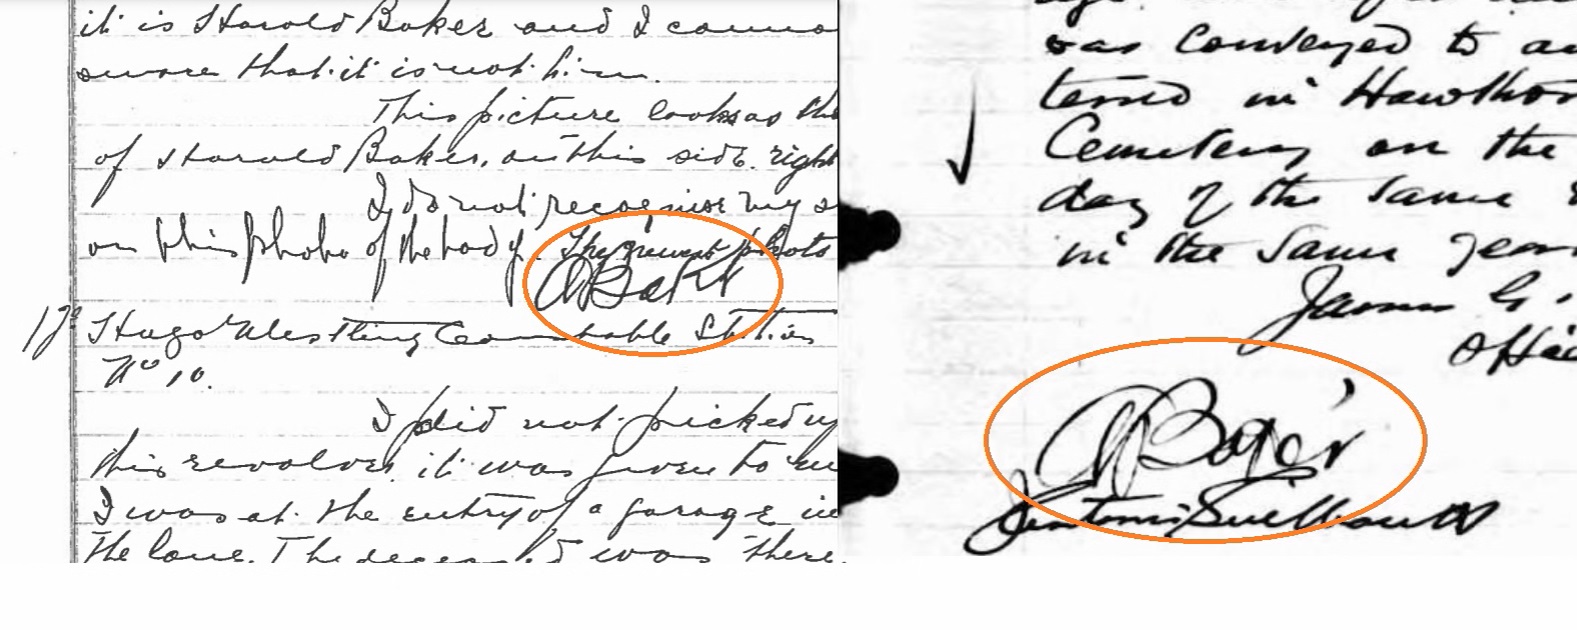 it is Harold Baker and I canno
swore that it is not him.
This picture looks as the
of Harold Baker, on this side right
I do not recognise my s
on this photo of the body. The newest photos
ABaker
17o Hugo Westling Constable Station
No 10.
I did not picked up
this revolver, it was given to me
I was at the entry of a garage in
the lane. The deceased was there
was conveyed to an
terred in Hawthor
Cemetery on the
day of the same
in the same year
James G.
Offic